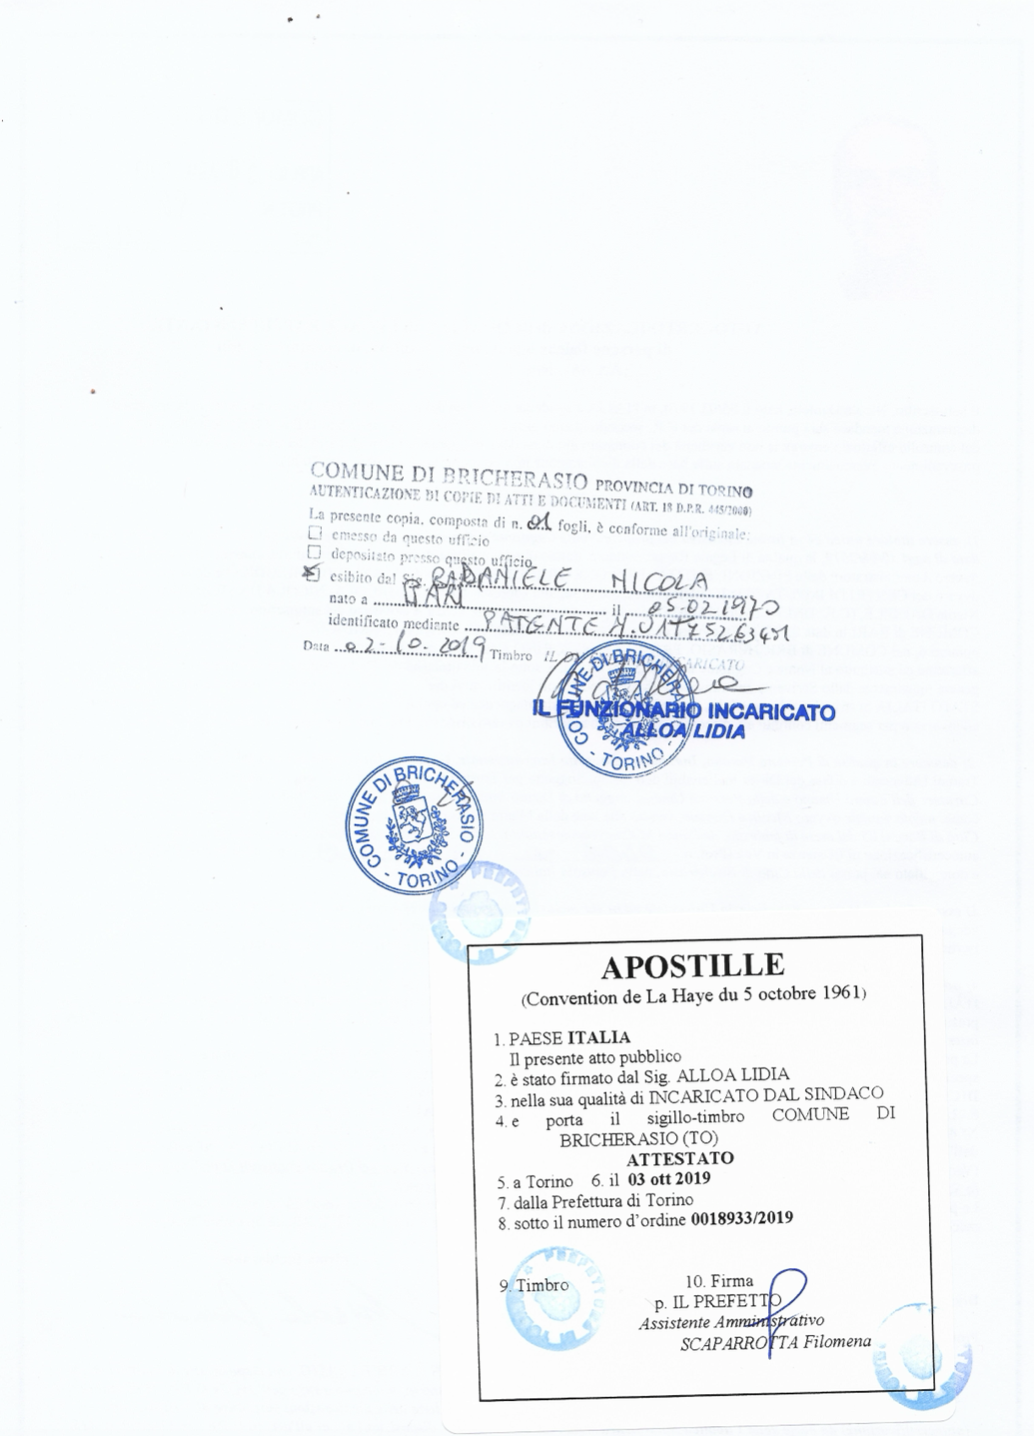 COMUNE DI BRICHERASIO PROVINCIA DI TORINO
AUTENTICAZIONE DI COPIE DI ATTI E DOCUMENTI (ART. 18 D.P.R. 445/2000)
La presente copia, composta di n. 01 fogli, è conforme all'originale:
emesso da questo ufficio
depositato presso questo ufficio
esibito dal Sig. RADANIELE NICOLA
nato a BARI il 05-02 1970
identificato mediante PATENTE N.
Data 02-10-2019 Timbro IL INCARICATO
COMUNE DI BRICHERASIO - TORINO -
IL FUNZIONARIO INCARICATO
ALLOA LIDIA
COMUNE DI BRICHERASIO - TORINO -
PREFETTURA DI TORINO
APOSTILLE
(Convention de La Haye du 5 octobre 1961)
1. PAESE ITALIA
Il presente atto pubblico
2. è stato firmato dal Sig. ALLOA LIDIA
3. nella sua qualità di INCARICATO DAL SINDACO
4. e porta il sigillo-timbro COMUNE DI
BRICHERASIO (TO)
ATTESTATO
5. a Torino 6. il 03 ott 2019
7. dalla Prefettura di Torino
8. sotto il numero d'ordine 0018933/2019
9. Timbro 10. Firma
p. IL PREFETTO
Assistente Amministrativo
SCAPARROTTA Filomena